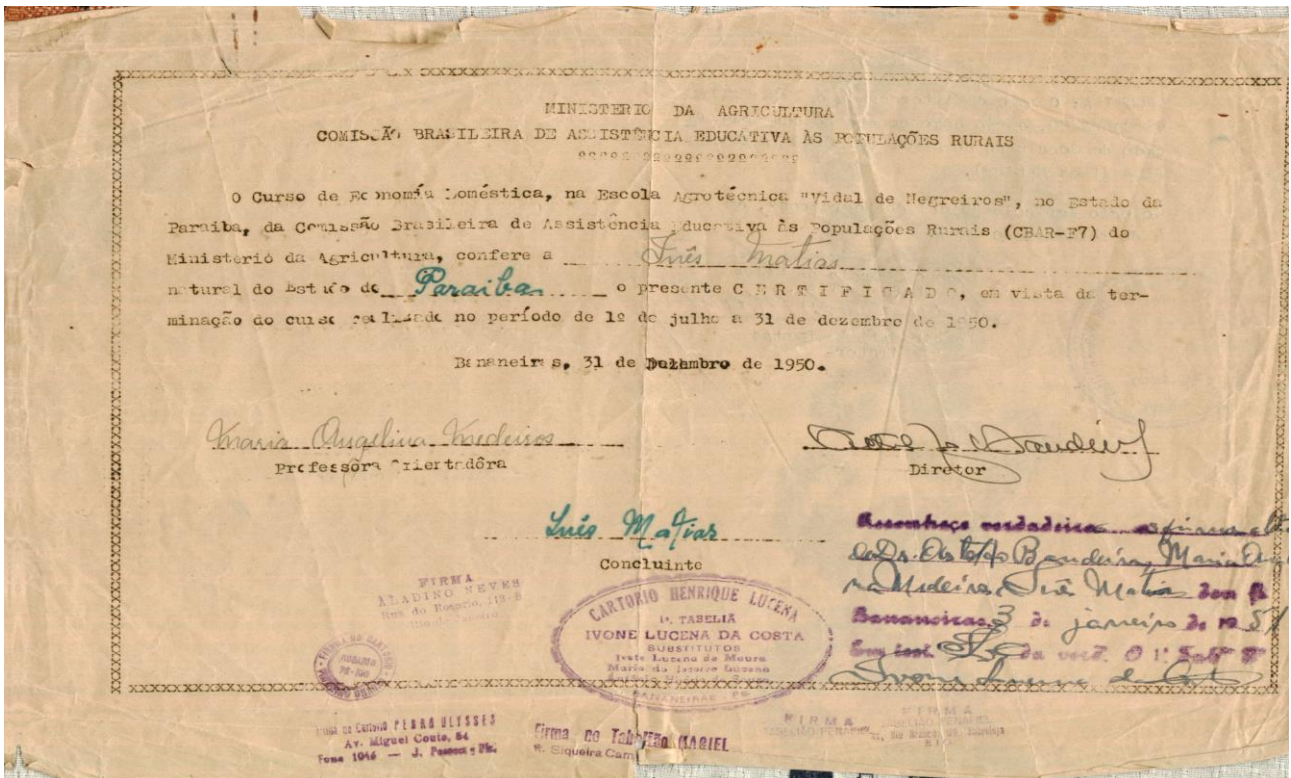 MINISTERIO DA AGRICULTURA
COMISSÃO BRASILEIRA DE ASSISTÊNCIA EDUCATIVA ÀS POPULAÇÕES RURAIS
O Curso de Economía Doméstica, na Escola Agrotécnica "Vidal de Negreiros", no Estado da
Paraiba, da Comissão Brasileira de Assistência Educativa às Populações Rurais (CBAR-F7) do
Ministerio da Agricultura, confere a Inês Matias
natural do Estado de Paraiba o presente C E R T I F I C A D O, em vista da ter-
minação do curso realizado no período de 1º de julho a 31 de dezembro de 1950.
Bananeiras, 31 de Dezembro de 1950.
Maria Angelina Medeiros
Professôra Orientadôra
Diretor
Inês Matias
Concluinte
Reconheço verdadeira
Bandeira, Maria
Medeiros, Inês Matias dou fé
Bananeiras, 3 de janeiro de 1951
da verd. O 1º
FIRMA
ALADINO NEVES
Rua do Rosario, 113-B
Rio de Janeiro
CARTORIO HENRIQUE LUCENA
1ª TABELIÃ
IVONE LUCENA DA COSTA
SUBSTITUTOS
Ivete Lucena de Moura
Maria do Lucena
BANANEIRAS PB
Firma no Cartorio PEDRO ULYSSES
Av. Miguel Couto, 54
Fone 1046 — J. Pessoa
Firma no Tabelião MACIEL
R. Siqueira Cam
FIRMA
FIRMA
TABELIÃO PENAFIEL
RIO